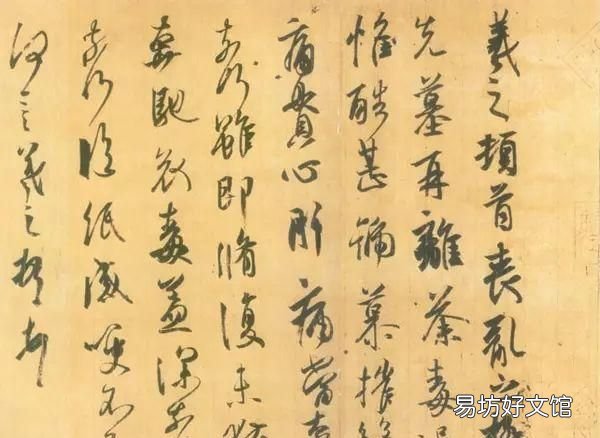 羲之頓首喪亂之極
先墓再離荼毒追
惟酷甚號慕摧絶
痛貫心肝痛當奈
奈何雖即脩復未獲
奔馳哀毒益深奈
奈何臨紙感哽不
何言羲之頓首
易坊好文馆